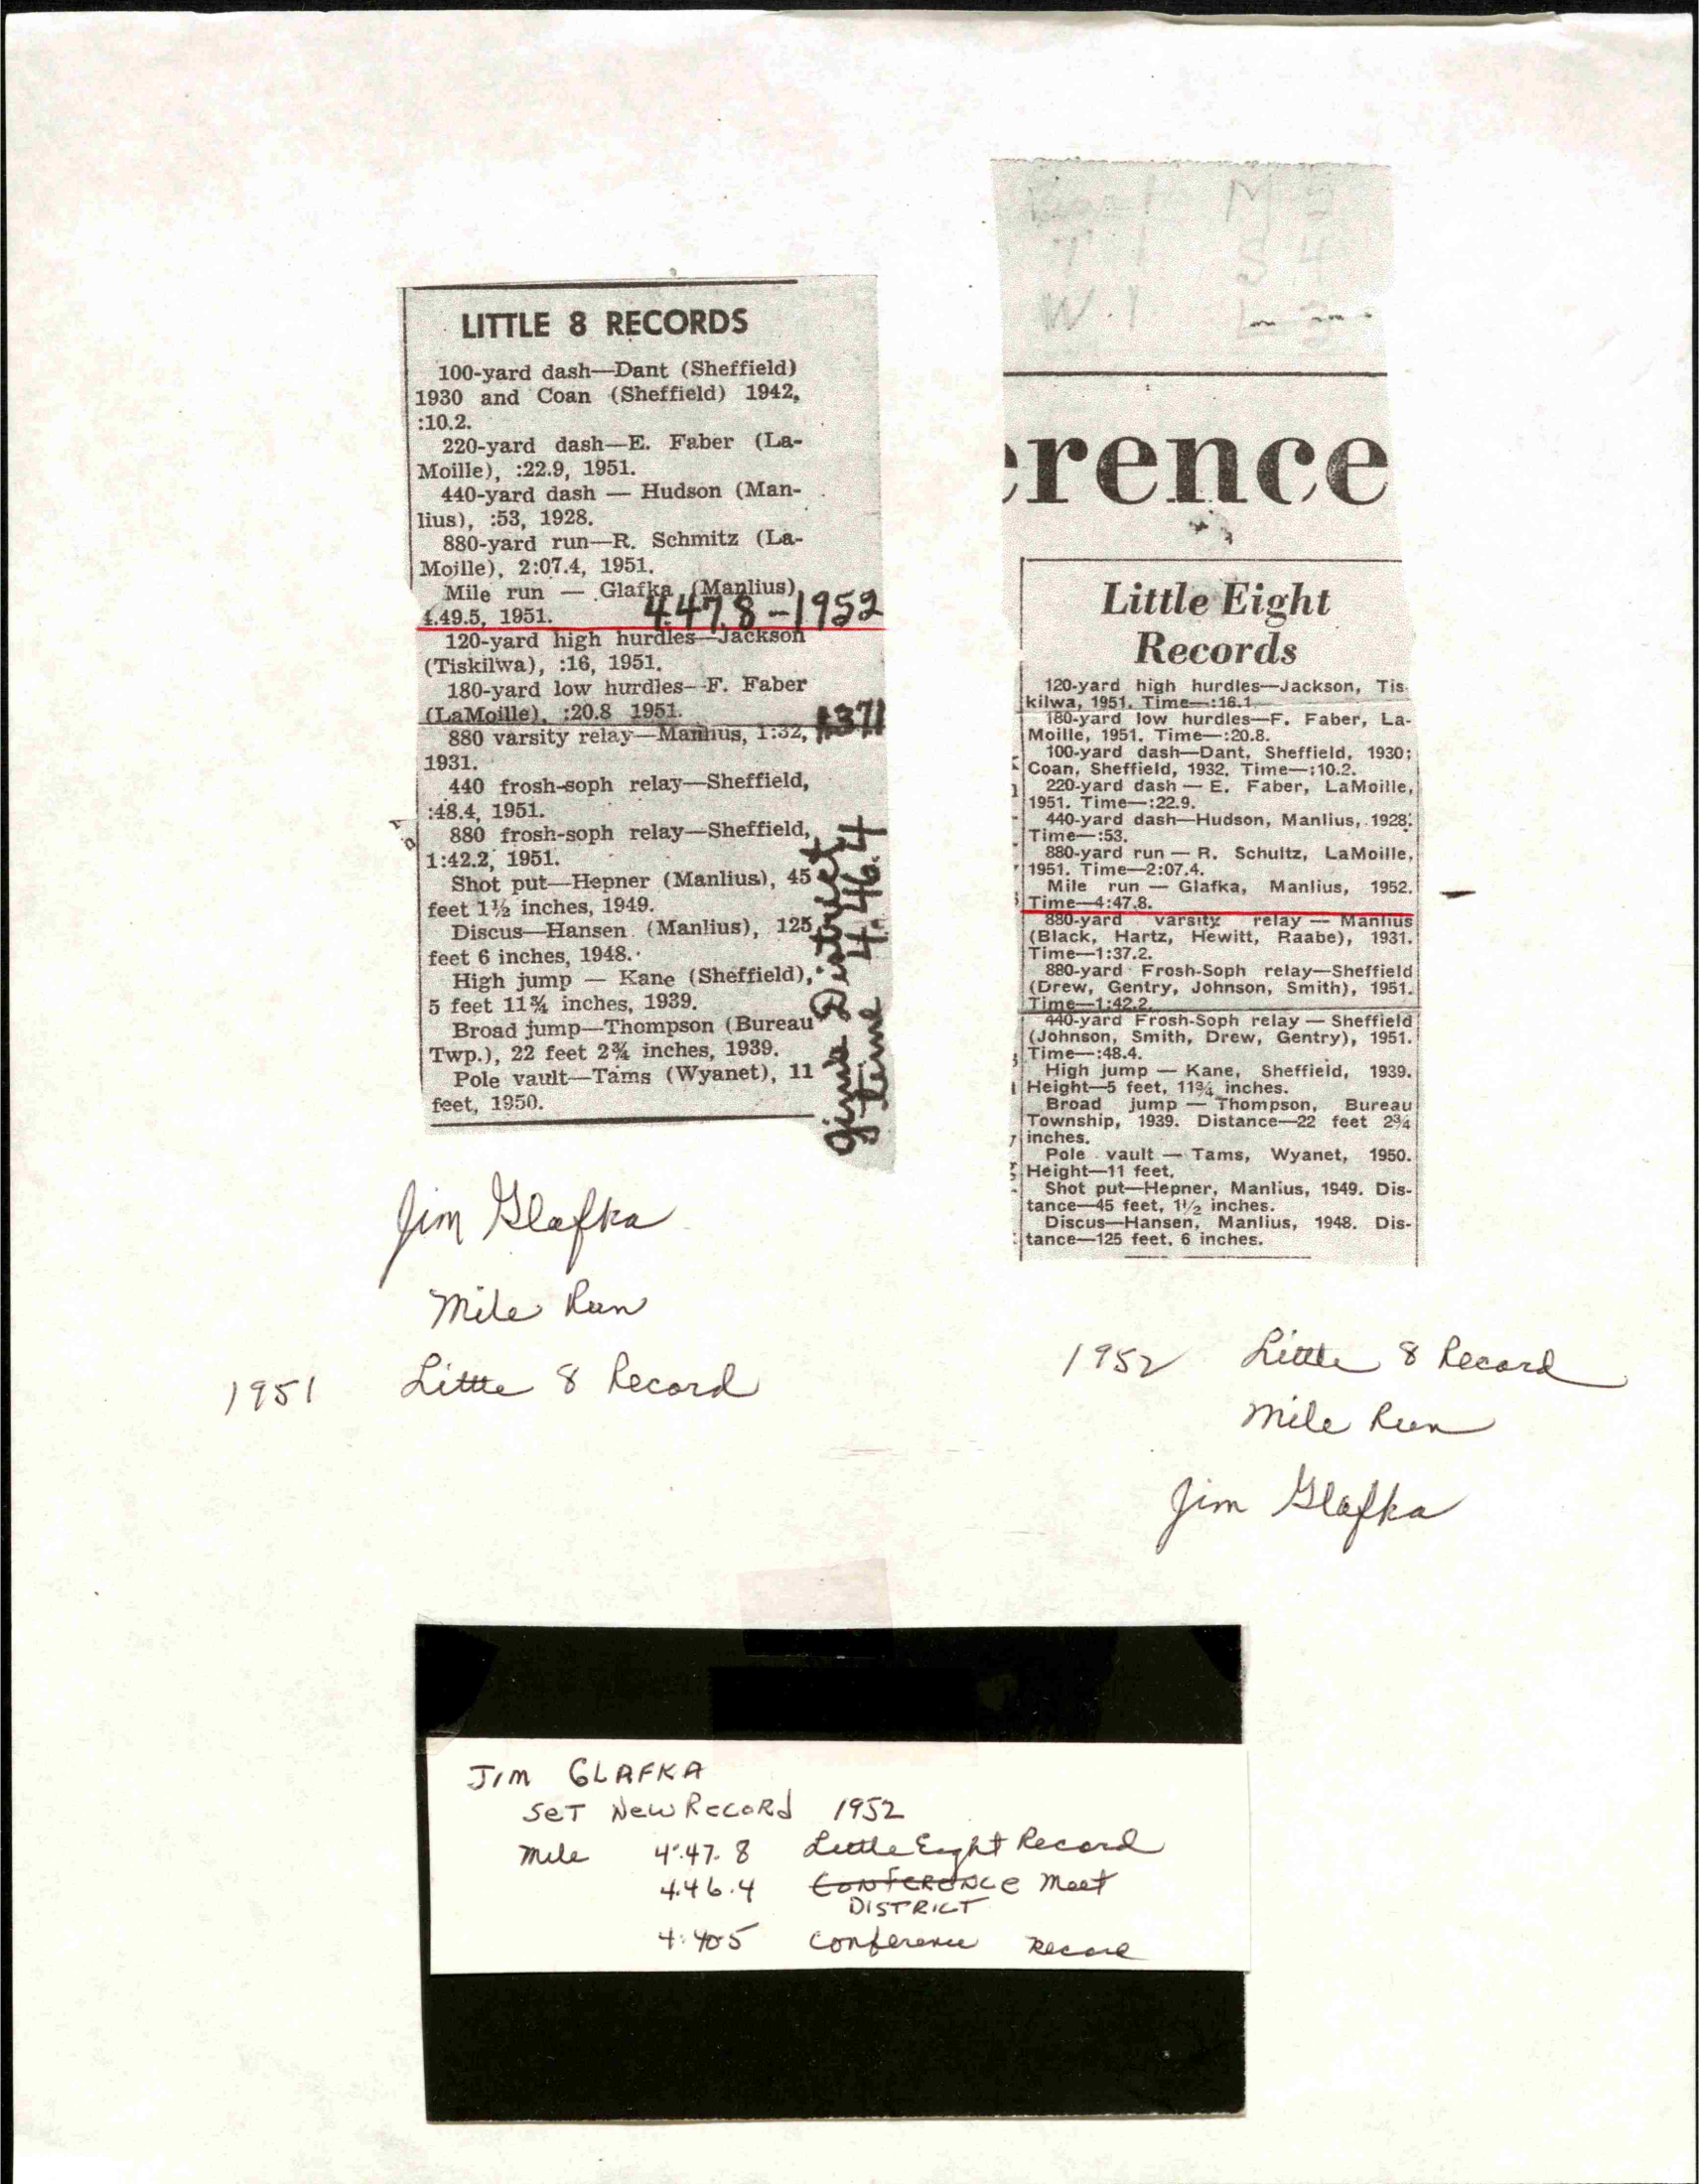 LITTLE 8 RECORDS
100-yard dash—Dant (Sheffield)
1930 and Coan (Sheffield) 1942,
:10.2.
220-yard dash—E. Faber (La-
Moille), :22.9, 1951.
440-yard dash — Hudson (Man-
lius), :53, 1928.
880-yard run—R. Schmitz (La-
Moille), 2:07.4, 1951.
Mile run — Glafka (Manlius)
4.49.5, 1951. 4.47.8-1952
120-yard high hurdles—Jackson
(Tiskilwa), :16, 1951.
180-yard low hurdles—F. Faber
(LaMoille), :20.8 1951.
880 varsity relay—Manlius, 1:32,
1931.
440 frosh-soph relay—Sheffield,
:48.4, 1951.
880 frosh-soph relay—Sheffield,
1:42.2, 1951.
Shot put—Hepner (Manlius), 45
feet 1½ inches, 1949.
Discus—Hansen (Manlius), 125
feet 6 inches, 1948.
High jump — Kane (Sheffield),
5 feet 11¾ inches, 1939.
Broad jump—Thompson (Bureau
Twp.), 22 feet 2¾ inches, 1939.
Pole vault—Tams (Wyanet), 11
feet, 1950.
District
time 4:46.4
Jim Glafka
Mile Run
1951 Little 8 Record
M 2
T 1 S 4
W. 1 L
erence
Little Eight
Records
120-yard high hurdles—Jackson, Tis-
kilwa, 1951. Time—:16.1
180-yard low hurdles—F. Faber, La-
Moille, 1951. Time—:20.8.
100-yard dash—Dant, Sheffield, 1930;
Coan, Sheffield, 1932. Time—:10.2.
220-yard dash — E. Faber, LaMoille,
1951. Time—:22.9.
440-yard dash—Hudson, Manlius, 1928.
Time—:53.
880-yard run — R. Schultz, LaMoille,
1951. Time—2:07.4.
Mile run — Glafka, Manlius, 1952.
Time—4:47.8.
880-yard varsity relay — Manlius
(Black, Hartz, Hewitt, Raabe), 1931.
Time—1:37.2.
880-yard Frosh-Soph relay—Sheffield
(Drew, Gentry, Johnson, Smith), 1951.
Time—1:42.2.
440-yard Frosh-Soph relay — Sheffield
(Johnson, Smith, Drew, Gentry), 1951.
Time—:48.4.
High jump — Kane, Sheffield, 1939.
Height—5 feet, 11¾ inches.
Broad jump — Thompson, Bureau
Township, 1939. Distance—22 feet 2¾
inches.
Pole vault — Tams, Wyanet, 1950.
Height—11 feet.
Shot put—Hepner, Manlius, 1949. Dis-
tance—45 feet, 1½ inches.
Discus—Hansen, Manlius, 1948. Dis-
tance—125 feet, 6 inches.
1952 Little 8 Record
Mile Run
Jim Glafka
JIM GLAFKA
SET New Record 1952
Mile 4:47.8 Little Eight Record
4.46.4 CONFERENCE Meet
DISTRICT
4:40.5 Conference Record